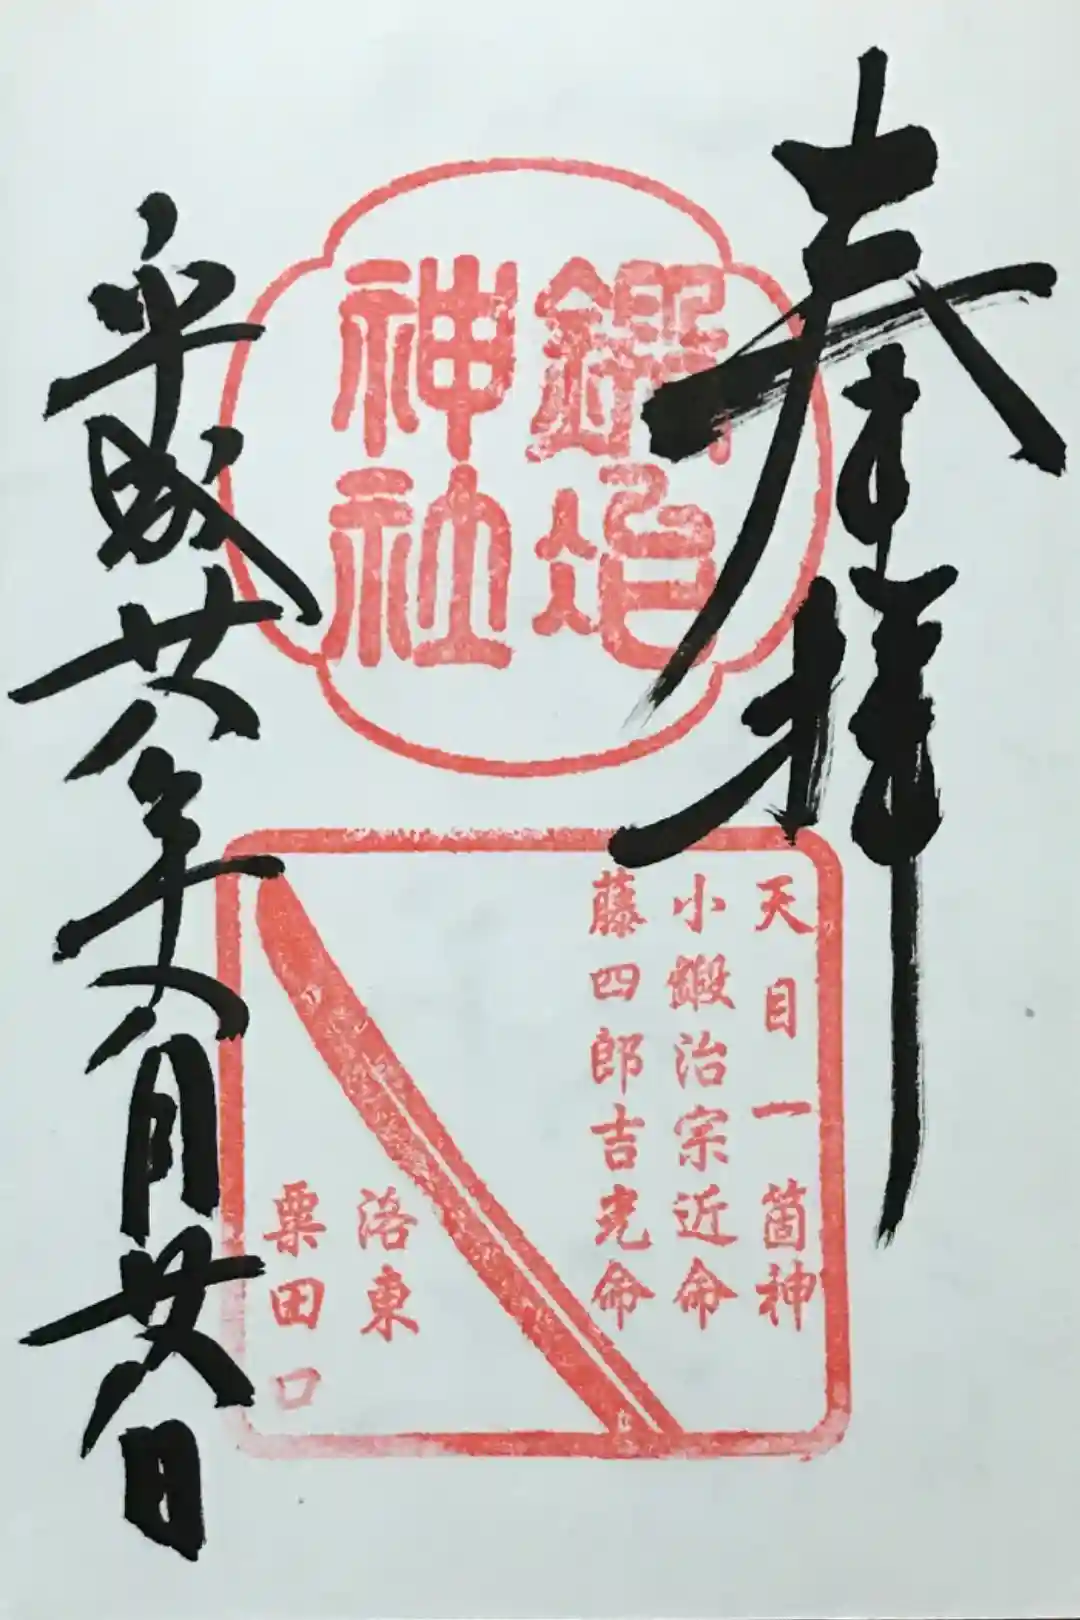 奉拝
鍛冶
神社
天目一箇神
小鍛治宗近命
藤四郎吉光命
洛東
粟田口
平成廿八年八月廿八日